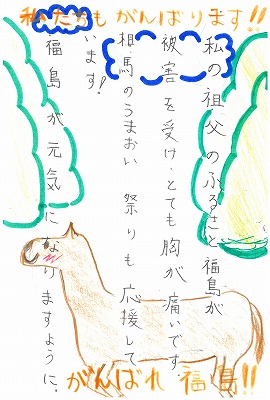 私たちもがんばります!!
私の祖父のふるさと福島が
被害を受け、とても胸が痛いです。
相馬のうまおい祭りも応援して
います!
福島が元気になりますように。
がんばれ福島!!